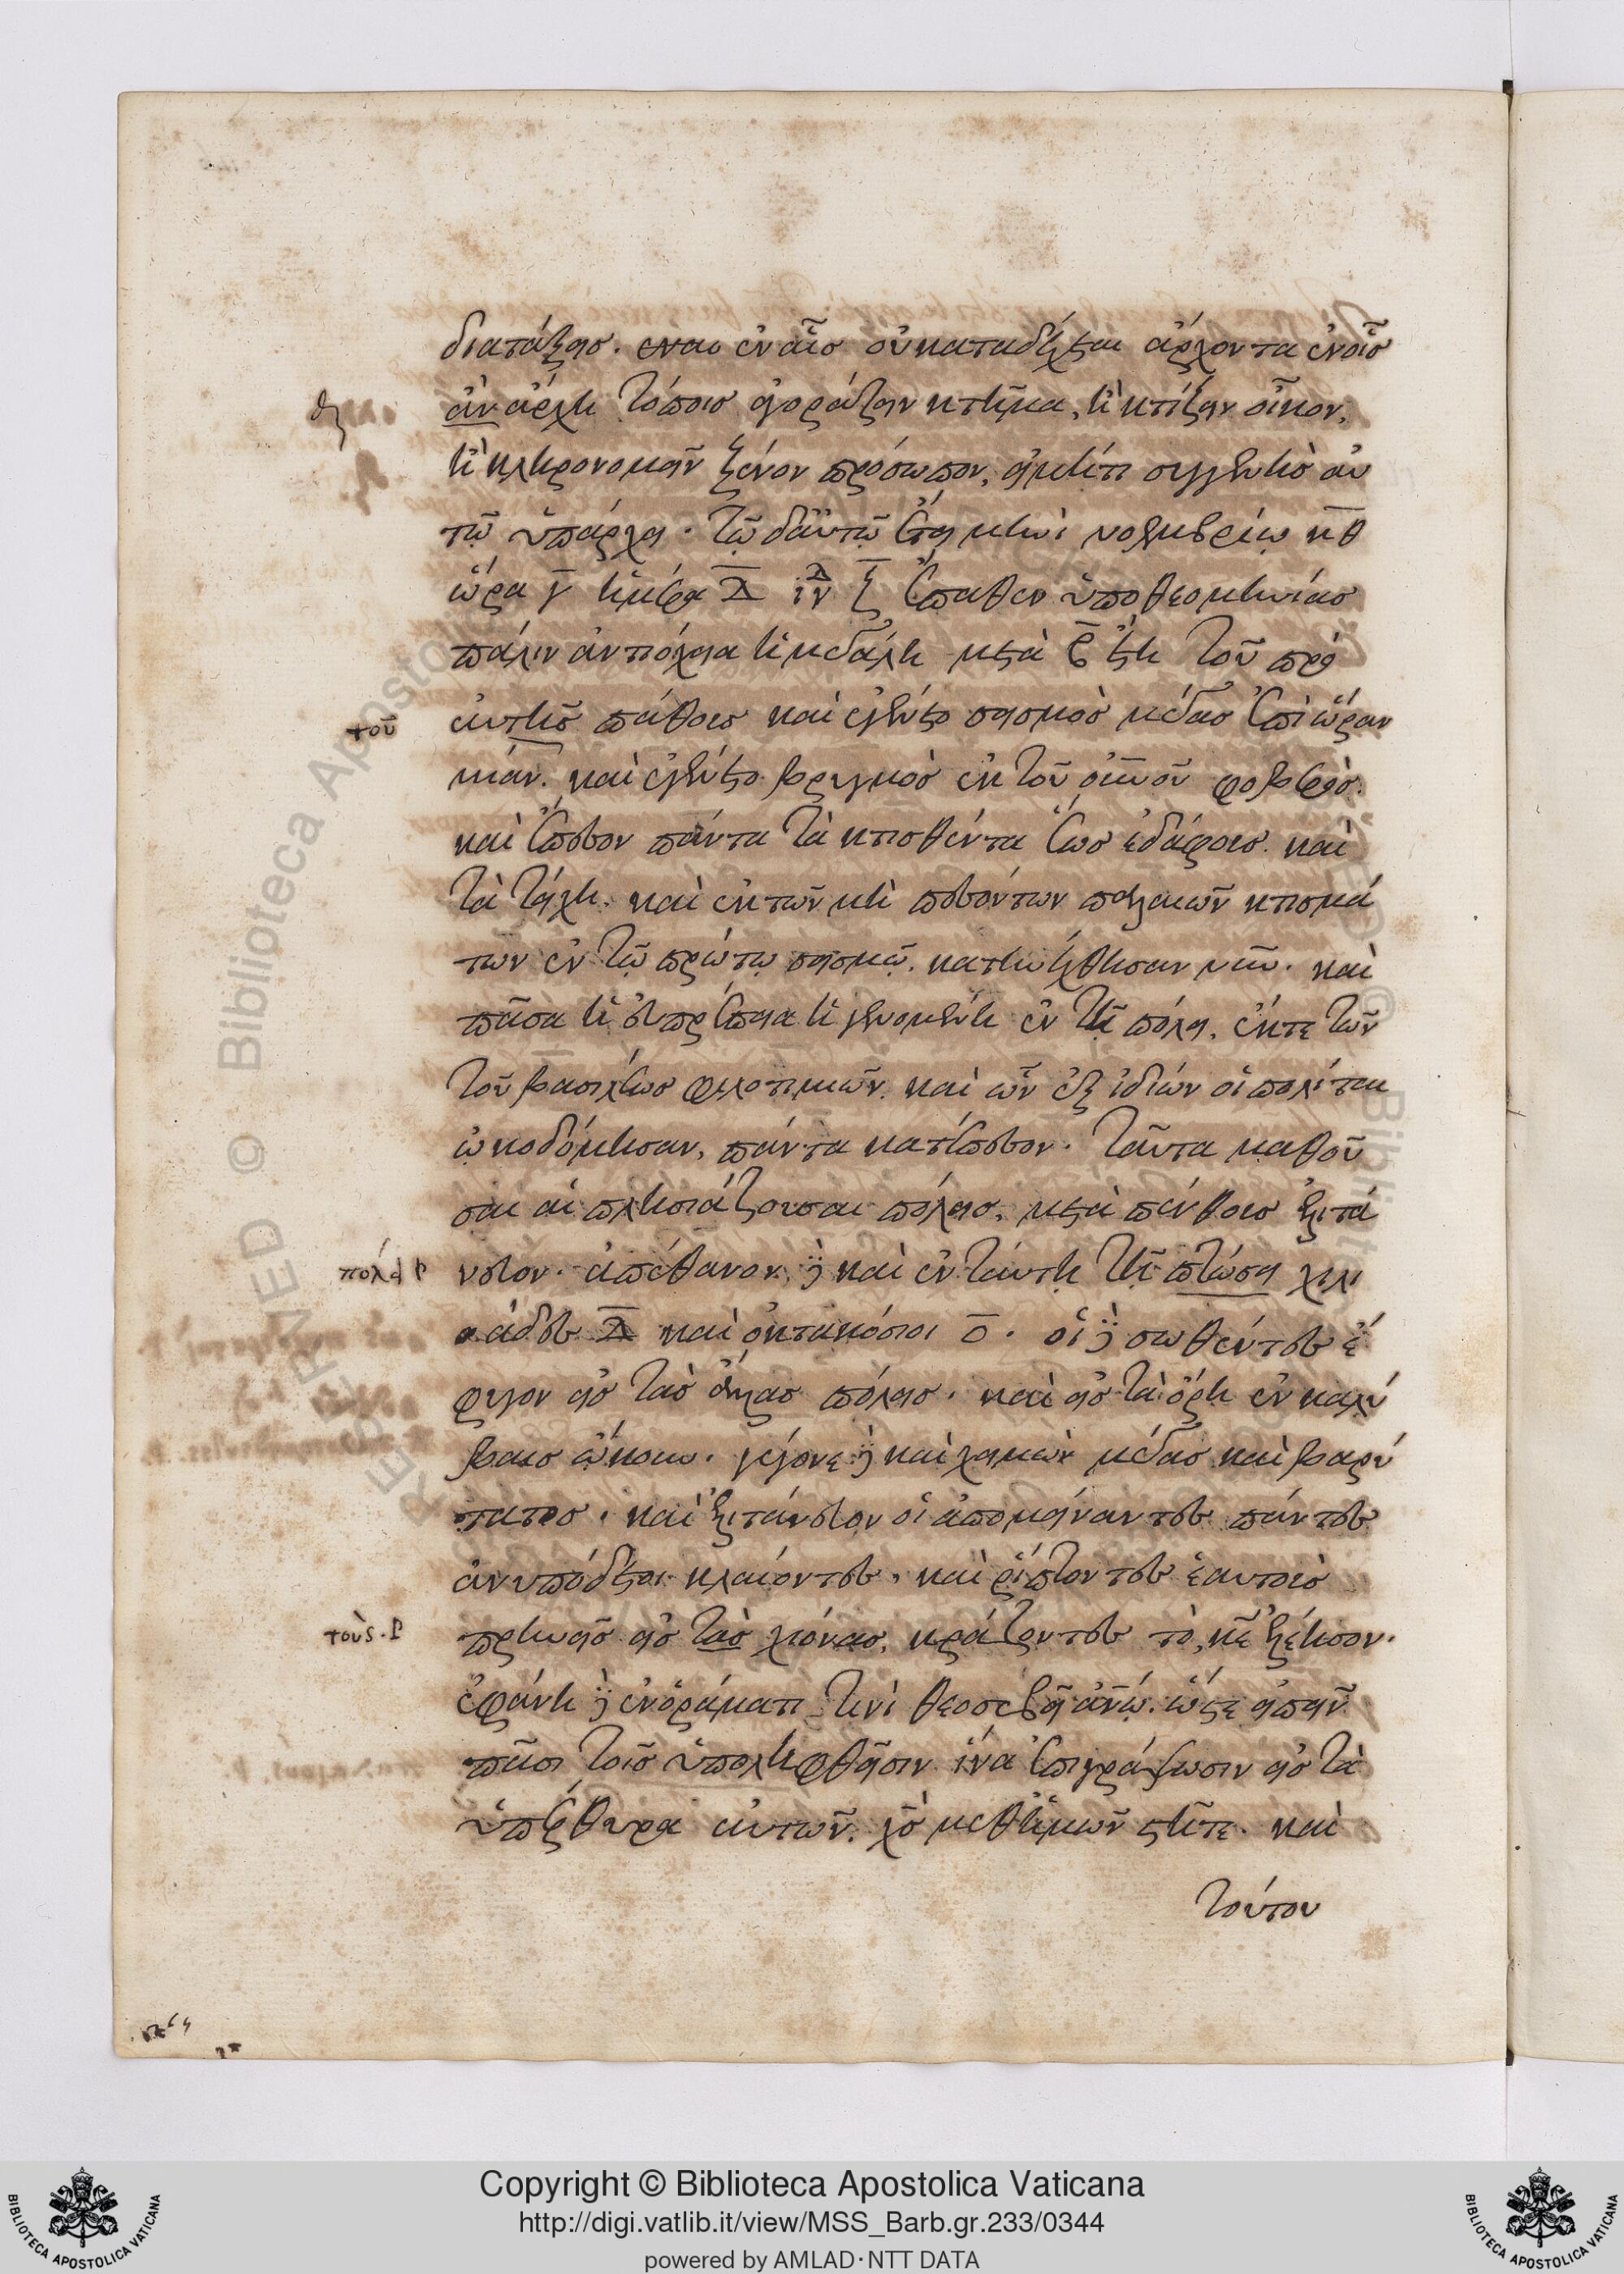 διατάξεις. εναις ἐν αἷς οὐ καταδέχεται ἄρχοντα ἐν οἷς
ἂν ἄρχη τόποις ἀγοράζειν κτῆμα, ἢ κτίζειν οἶκον,
ἢ κληρονομεῖν ξένον πρόσωπον, εἰ μήτι συγγενὴς αυ
τῶ ὑπάρχει. Τῶ δ' αὐτῶ ἔτει μηνὶ νοεμβρίω κθ
τοῦ
ὥρα γ ἡμέρα δ ἰν ζ ἔπαθεν ὑπὸ θεομηνίας
πάλιν ἀντιόχεια ἡ μεγάλη μετὰ β ἔτη τοῦ πρὸ
αὐτῆς πάθους καὶ ἐγένετο σεισμὸς μέγας ἐπὶ ὥραν
μίαν. καὶ ἐγένετο βρυγμὸς ἐκ τοῦ οὐνοῦ φοβερός.
καὶ ἔπεσον πάντα τὰ κτισθέντα ἕως ἐδάφους. καὶ
τὰ τείχη. καὶ ἐκ τῶν μὴ πεσόντων παλαιῶν κτισμά
των ἐν τῶ πρώτω σεισμῶ. κατηνέχθησαν νῦν. καὶ
πᾶσα ἡ εὐπρέπεια ἡ γενομένη ἐν τῆ πόλει, ἔκ τε τῶν
τοῦ βασιλέως φιλοτιμιῶν. καὶ ὧν ἐξ ἰδίων οἱ πολίται
ὠκοδόμησαν, πάντα κατέπεσον. Ταῦτα μαθοῦ
σαι αἱ πλησιάζουσαι πόλεις, μετὰ πένθους ἐλιτά
νευον. ἀπέθανον δὲ καὶ ἐν ταύτη τῆ πτώσει χιλι
άδες δ καὶ ὀκτακόσιοι ο. οἱ δὲ σωθέντες ἔ
φυγον εἰς τὰς ἄλλας πόλεις. καὶ εἰς τὰ ὄρη ἐν καλύ
βαις ὤκουν. γέγονε δὲ καὶ χειμὼν μέγας καὶ βαρύ
τατος. καὶ ἐλιτάνευον οἱ ἀπομείναντες πάντες
ἀνυπόδετοι κλαίοντες, καὶ ῥίπτοντες ἑαυτοὺς
τοὺς. P
πρηνεῖς εἰς τὰς χιόνας, κράζοντες τὸ, κε ἐλέησον.
ἐφάνη δὲ ἐν ὁράματι τινὶ θεοσεβεῖ ανω. ὥστε εἰπεῖν
πᾶσι τοῖς ὑπολειφθεῖσιν ἵνα ἐπιγράψωσιν εἰς τὰ
ὑπέρθυρα αὐτῶν. χς μεθ' ἡμῶν στῆτε. καὶ
τούτου
Copyright © Biblioteca Apostolica Vaticana
http://digi.vatlib.it/view/MSS_Barb.gr.233/0344
powered by AMLAD·NTT DATA
BIBLIOTECA APOSTOLICA VATICANA
BIBLIOTECA APOSTOLICA VATICANA